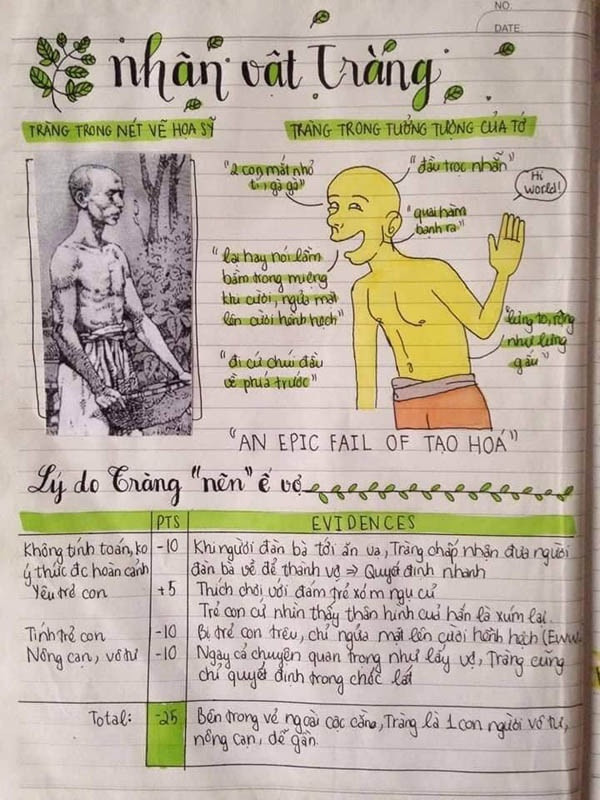 NO:
DATE:
nhân vật Tràng
TRÀNG TRONG NÉT VẼ HỌA SỸ
TRÀNG TRONG TƯỞNG TƯỢNG CỦA TỚ
"2 con mắt nhỏ
tí, gà gà"
"đầu trọc nhẵn"
Hi
World!
"quai hàm
bạnh ra"
"lại hay nói lầm
bầm trong miệng
khi cười, ngửa mặt
lên cười hềnh hệch"
"lưng to, rộng
như lưng
gấu"
"đi cứ chúi đầu
về phía trước"
"AN EPIC FAIL OF TẠO HOÁ"
Lý do Tràng "nên" ế vợ
PTS
EVIDENCES
Không tính toán, ko
ý thức đc hoàn cảnh
-10
Khi người đàn bà tới ăn vạ, Tràng chấp nhận đưa người
đàn bà về để thành vợ => Quyết định nhanh
Yêu trẻ con
+5
Thích chơi với đám trẻ xóm ngụ cư
Trẻ con cứ nhìn thấy thân hình của hắn là xúm lại.
Tính trẻ con
-10
Bị trẻ con trêu, chỉ ngửa mặt lên cười hềnh hệch (Eww
Nông cạn, vô tư
-10
Ngay cả chuyện quan trọng như lấy vợ, Tràng cũng
chỉ quyết định trong chốc lát
Total:
-25
Bên trong vẻ ngoài cộc cằn, Tràng là 1 con người vô tư,
nông cạn, dễ gần.